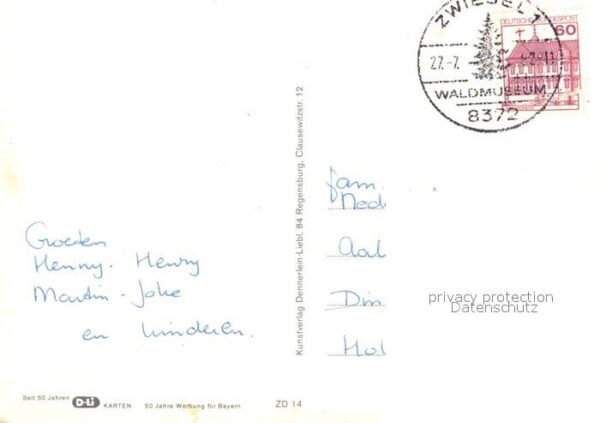 ZWIESEL 1
DEUTSCHE BUNDESPOST
60
27.-7.
WALDMUSEUM
8372
Kunstverlag Dennerlein-Liebl, 84 Regensburg, Clausewitzstr. 12
fam.
Ned
Groeten
Henny - Henry
Martin - Joke
en kinderen.
Aal
Din
Hol
privacy protection
Datenschutz
Seit 50 Jahren D-Li KARTEN 50 Jahre Werbung für Bayern
ZD 14